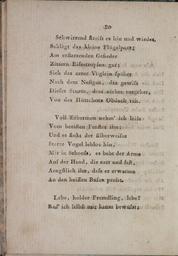 80
Schwirrend streift es hin und wieder,
Schlägt das kleine Flügelpaar;
Am erstarrenden Gefieder
Zittern Eisestropfen gar!
Sich das arme Vöglein
Nach dem Nestgen, das gewiß
Dieser Sturm, dem nichts
Von des Hüttchens Obdach riß.
Voll Erbarmen nehm' ich leis
Vom bereiften Fenster ihn;
Und es starb der silberweiße
Starre Vogel
Mir im Schooße, es bebt der Arme
Auf der Hand, die zart und fest,
Aengstlich ihn, daß er erwarme
An den heißen Busen preßt.
Lebe, holder Fremdling, lebe!
Ruf' ich selbst mir kaum bewußt;